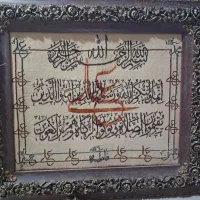 بسم الله الرحمن الرحيم
إنما وليكم الله ورسوله والذين آمنوا الذين
يقيمون الصلاة ويؤتون الزكاة وهم راكعون
علي